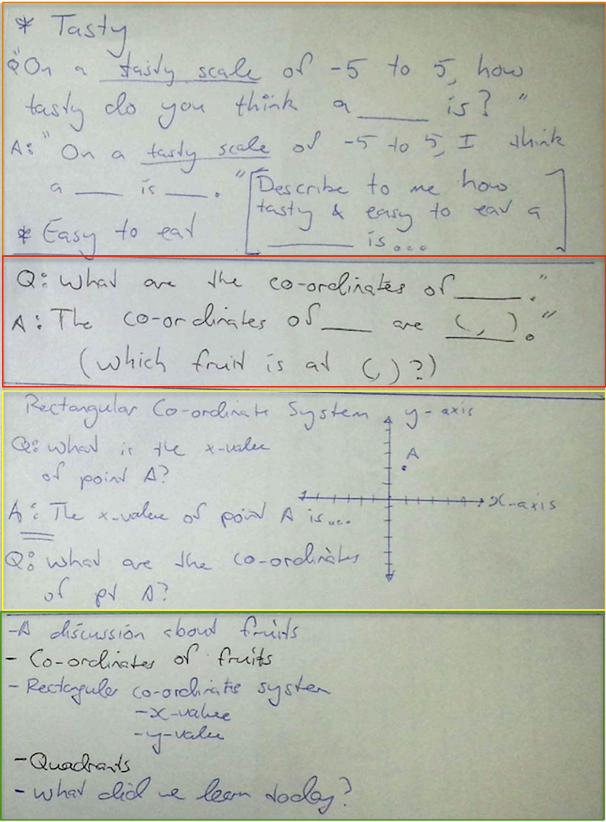 * Tasty
Q: "On a tasty scale of -5 to 5, how
tasty do you think a ____ is?"
A: "On a tasty scale of -5 to 5, I think
a ____ is ____."
[Describe to me how
tasty & easy to eat a
____ is...]
* Easy to eat
Q: What are the co-ordinates of ____."
A: The co-ordinates of ____ are ( , )."
(which fruit is at ( , )?)
Rectangular Co-ordinate System
y-axis
Q: What is the x-value
of point A?
A
A: The x-value of point A is...
x-axis
Q: What are the co-ordinates
of pt A?
- A discussion about fruits
- Co-ordinates of fruits
- Rectangular co-ordinate system
- x-value
- y-value
- Quadrants
- What did we learn today?